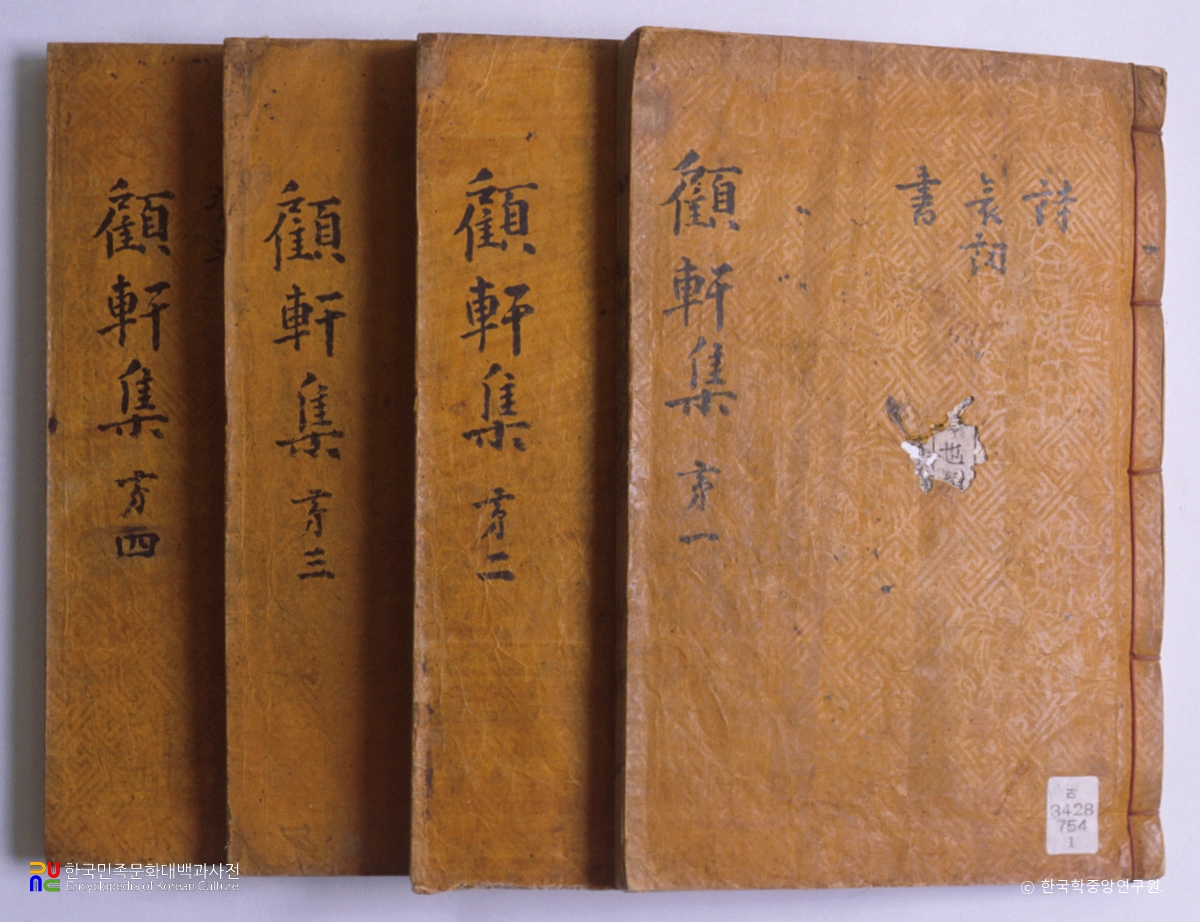 詩
哀詞
書
顧軒集 第一
顧軒集 第二
顧軒集 第三
顧軒集 第四
也
古
3428
754
1
한국민족문화대백과사전
Encyclopedia of Korean Culture
© 한국학중앙연구원